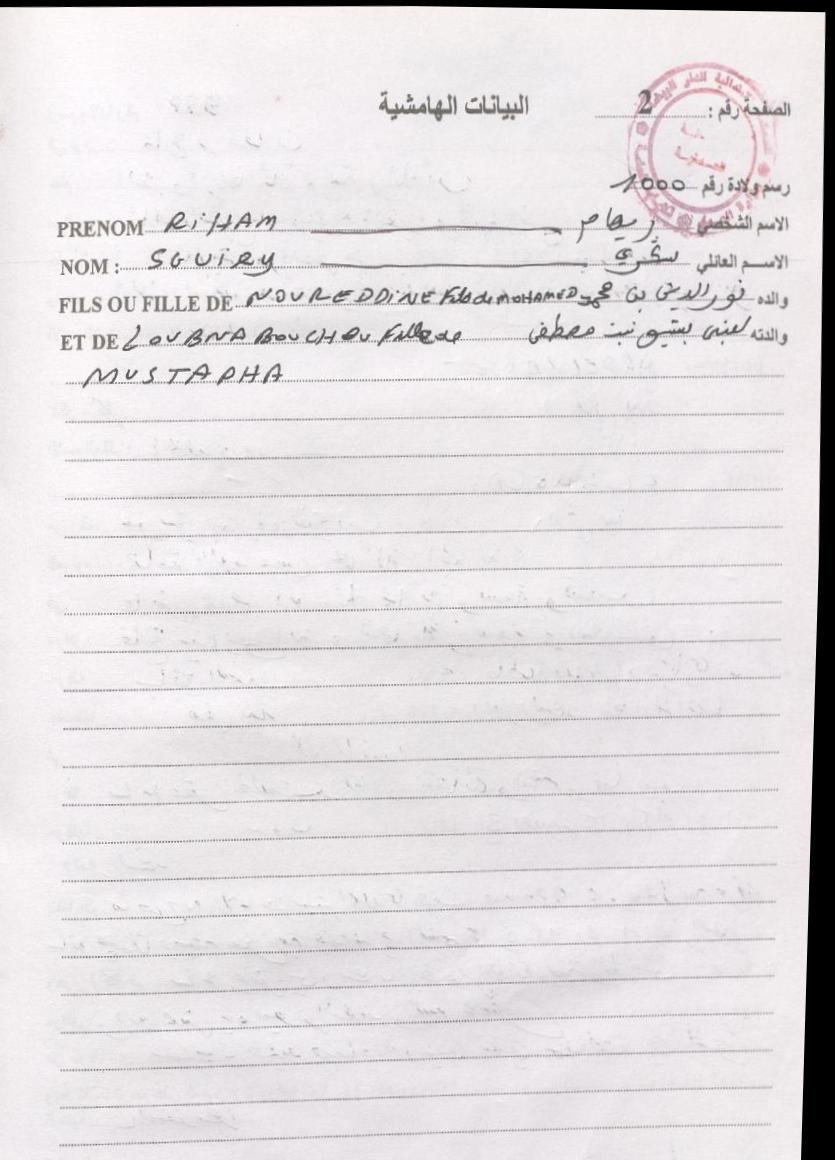 البيانات الهامشية
الصفحة رقم : 2
رسم ولادة رقم 1000
PRENOM RiHAM ريهام الاسم الشخصي
NOM : SGUIRY سݣري الاسم العائلي
FILS OU FILLE DE NOUREDDINE Fils de MOHAMED نور الدين بن محمد والده
ET DE LOUBNA BOUCHOU Fille de لبنى بشو بنت مصطفى والدته
MUSTAPHA